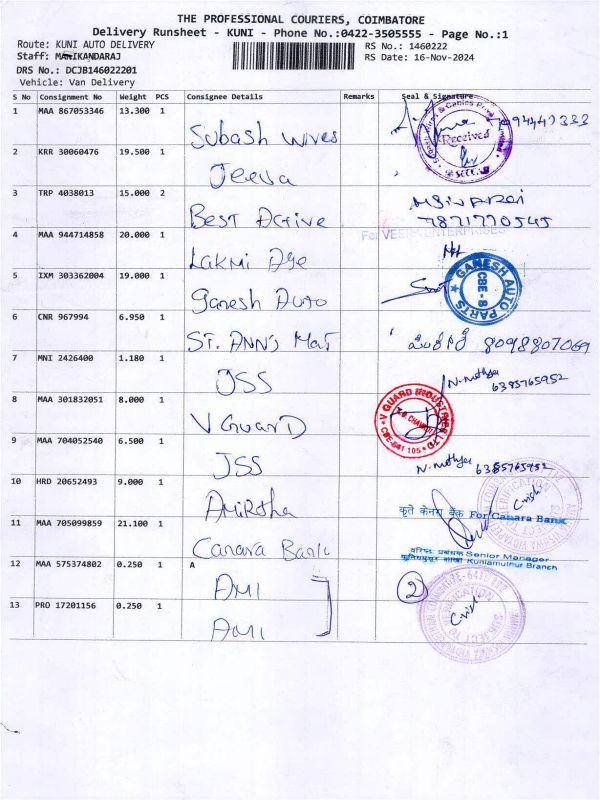 THE PROFESSIONAL COURIERS, COIMBATORE
Delivery Runsheet - KUNI - Phone No.:0422-3505555 - Page No.:1
Route: KUNI AUTO DELIVERY
RS No.: 1460222
Staff: MANIKANDARAJ
RS Date: 16-Nov-2024
DRS No.: DCJB146022201
Vehicle: Van Delivery
S No Consignment No Weight PCS Consignee Details Remarks Seal & Signature
1 MAA 867053346 13.300 1
Subash wives
Received
2 KRR 30060476 19.500 1
Jeeva
3 TRP 4038013 15.000 2
Best Active
7871770545
For VEERA ENTERPRISES
4 MAA 944714858 20.000 1
Lakmi Age
5 IXM 303362004 19.000 1
Ganesh Auto
GANESH AUTO PARTS
CBE-8
6 CNR 967994 6.950 1
ST. ANN'S MAT
8098807069
7 MNI 2426400 1.180 1
JSS
N. muthya
6385765952
8 MAA 301832051 8.000 1
V GUARD
V GUARD INDUSTRIES LTD
CBE-641 105
9 MAA 704052540 6.500 1
JSS
N. muthya 6385765952
10 HRD 20652493 9.000 1
Amirtha
11 MAA 705099859 21.100 1
Canara Bank
कृते केनरा बैंक For Canara Bank
वरिष्ठ प्रबंधक Senior Manager
Kuniamuthur Branch
12 MAA 575374802 0.250 1 A
AMI
2
13 PRO 17201156 0.250 1
AMI